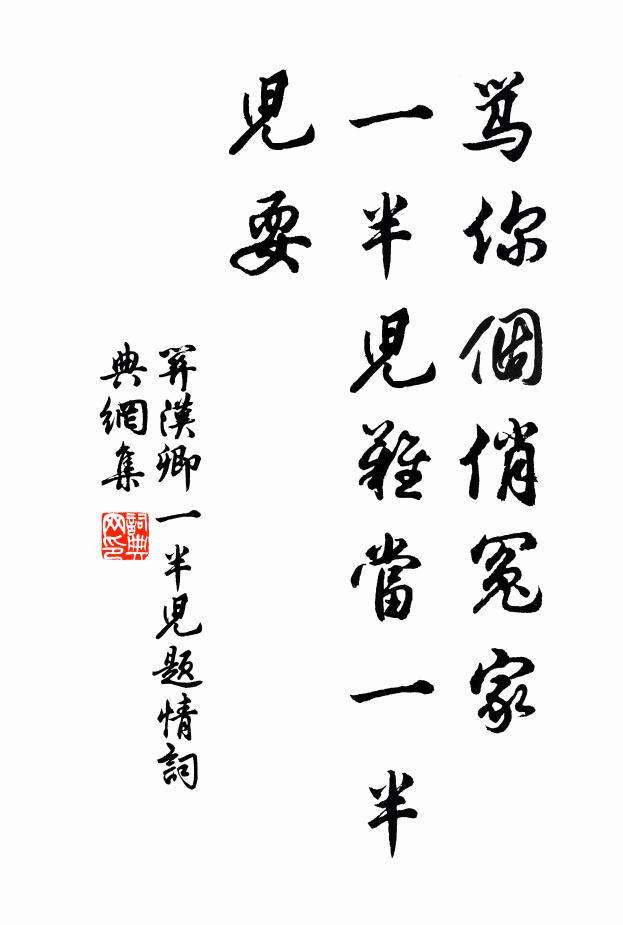 罵你個俏冤家
一半兒難當一半
兒耍
關漢卿一半兒題情詞
典網集
詞典網印